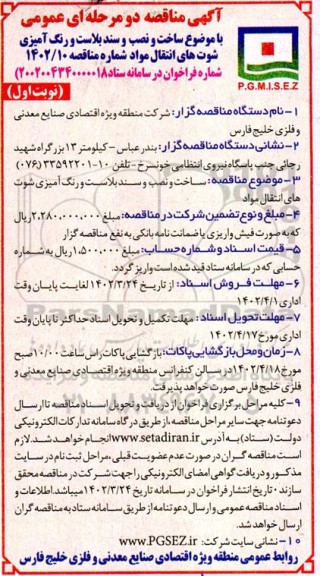 آگهی مناقصه دو مرحله ای عمومی
با موضوع ساخت و نصب و سند بلاست و رنگ آمیزی
شوت های انتقال مواد شماره مناقصه ۱۴۰۲/۱۰
شماره فراخوان در سامانه ستاد ۲۰۰۲۰۰۴۳۴۰۰۰۰۰۱۸)
P.G.M.I.S.E.Z
(نوبت اول)
۱- نام دستگاه مناقصه گزار: شرکت منطقه ویژه اقتصادی صنایع معدنی
و فلزی خلیج فارس
۲- نشانی دستگاه مناقصه گزار: بندرعباس - کیلومتر ۱۳ بزرگراه شهید
رجائی جنب پاسگاه نیروی انتظامی خونسرخ - تلفن ۱۰-۳۳۵۹۲۲۰۱ (۰۷۶)
۳- موضوع مناقصه: ساخت و نصب و سند بلاست و رنگ آمیزی شوت
های انتقال مواد
۴- مبلغ و نوع تضمین شرکت در مناقصه: مبلغ ۲,۲۸۰,۰۰۰,۰۰۰ ریال
که به صورت فیش واریزی یا ضمانت نامه بانکی به نفع مناقصه گزار
۵- قیمت اسناد و شماره حساب: مبلغ ۱,۵۰۰,۰۰۰ ریال به شماره
حسابی که در سامانه ستاد قید شده است واریز گردد.
۶- مهلت فروش اسناد: از تاریخ ۱۴۰۲/۳/۲۴ لغایت پایان وقت
اداری ۱۴۰۲/۴/۱
۷- مهلت تحویل اسناد: مهلت تکمیل و تحویل اسناد حداکثر تا پایان وقت
اداری مورخ ۱۴۰۲/۴/۱۷
۸- زمان و محل بازگشایی پاکات: بازگشایی پاکات راس ساعت ۱۰/۰۰ صبح
مورخ ۱۴۰۲/۴/۱۸ در سالن کنفرانس منطقه ویژه اقتصادی صنایع معدنی و
فلزی خلیج فارس صورت خواهد پذیرفت.
۹- کلیه مراحل برگزاری فراخوان از دریافت و تحویل اسناد مناقصه تا ارسال
دعوتنامه جهت سایر مراحل مناقصه، از طریق درگاه سامانه تدارکات الکترونیکی
دولت (ستاد) به آدرس www.setadiran.ir انجام خواهد شد. لازم
است مناقصه گران در صورت عدم عضویت قبلی، مراحل ثبت نام در سایت
مذکور و دریافت گواهی امضای الکترونیکی را جهت شرکت در مناقصه محقق
سازند. تاریخ انتشار فراخوان در سامانه تاریخ ۱۴۰۲/۳/۲۴ میباشد. اطلاعات و
اسناد مناقصه عمومی و ارسال دعوتنامه از طریق سامانه ستاد به مناقصه گران
ارسال خواهد شد.
۱۰- نشانی سایت شرکت: www.PGSEZ.ir
روابط عمومی منطقه ویژه اقتصادی صنایع معدنی و فلزی خلیج فارس